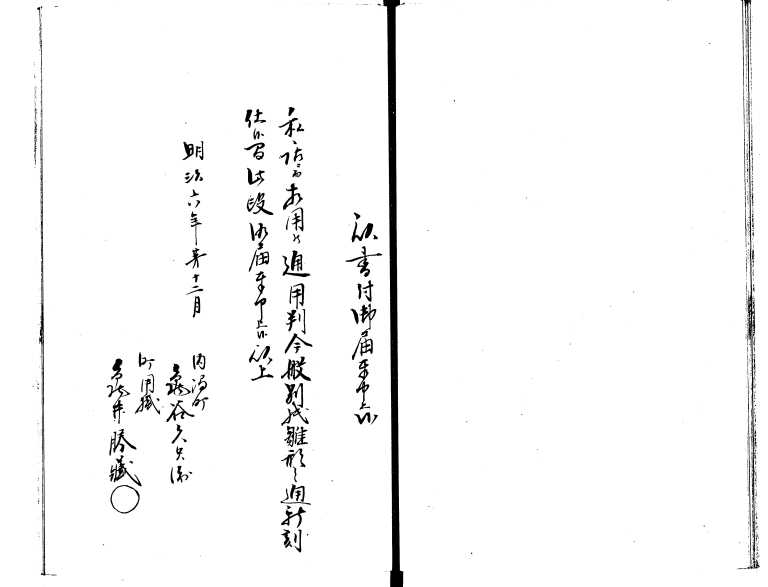 以書付御届奉申上候
私店ニ而相用候通用判今般別紙雛形之通新刻
仕候間此段御届奉申上候以上
明治六年第十二月
内満町
亀谷久兵衛
町用掛
亀井勝蔵